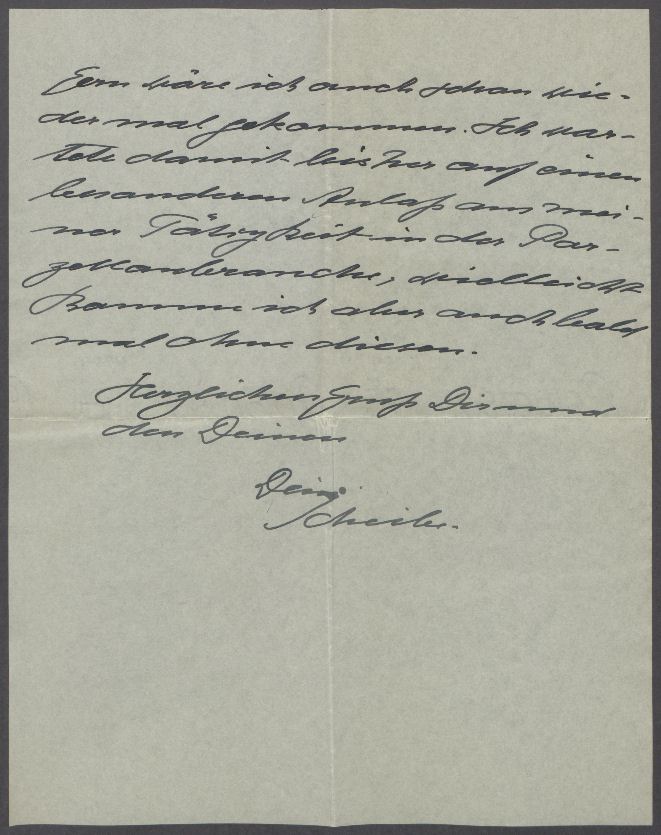 Gern wäre ich auch schon wie-
der mal gekommen. Ich war-
tete damit bisher auf einen
besonderen Anlaß aus mei-
ner Tätigkeit in der Por-
zellanbranche, vielleicht
komme ich aber auch bald
mal ohne diesen.
Herzlichen Gruß Dir und
den Deinen
Dein
Scheibe.